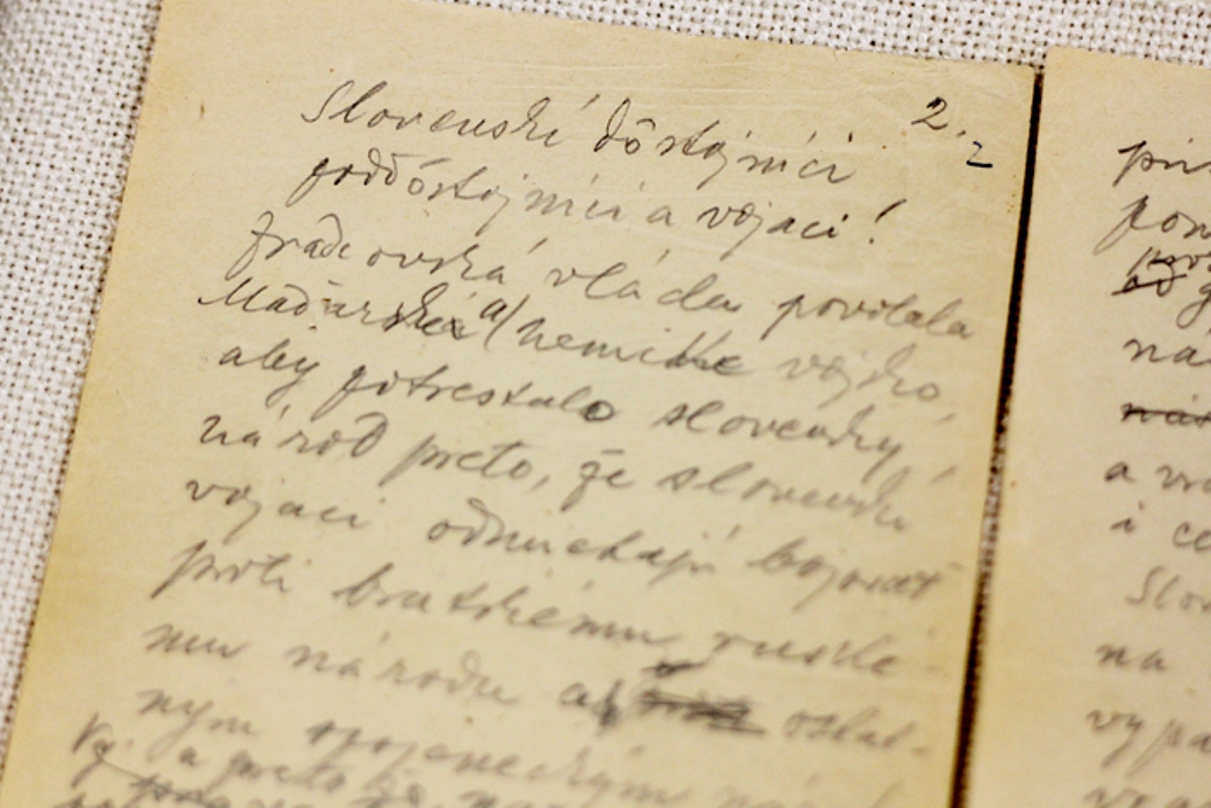 2.
2
Slovenskí dôstojníci
poddôstojníci a vojaci!
zradcovská vláda povolala
Maďarské a nemecké vojsko,
aby potrestalo slovenský
národ preto, že slovenskí
vojaci odmietajú bojovať
proti bratskému ruské-
mu národu a ostat-
ným spojeneckým
a preto že
pri
pon
na
a vr
i ce
Slov
na
vypa